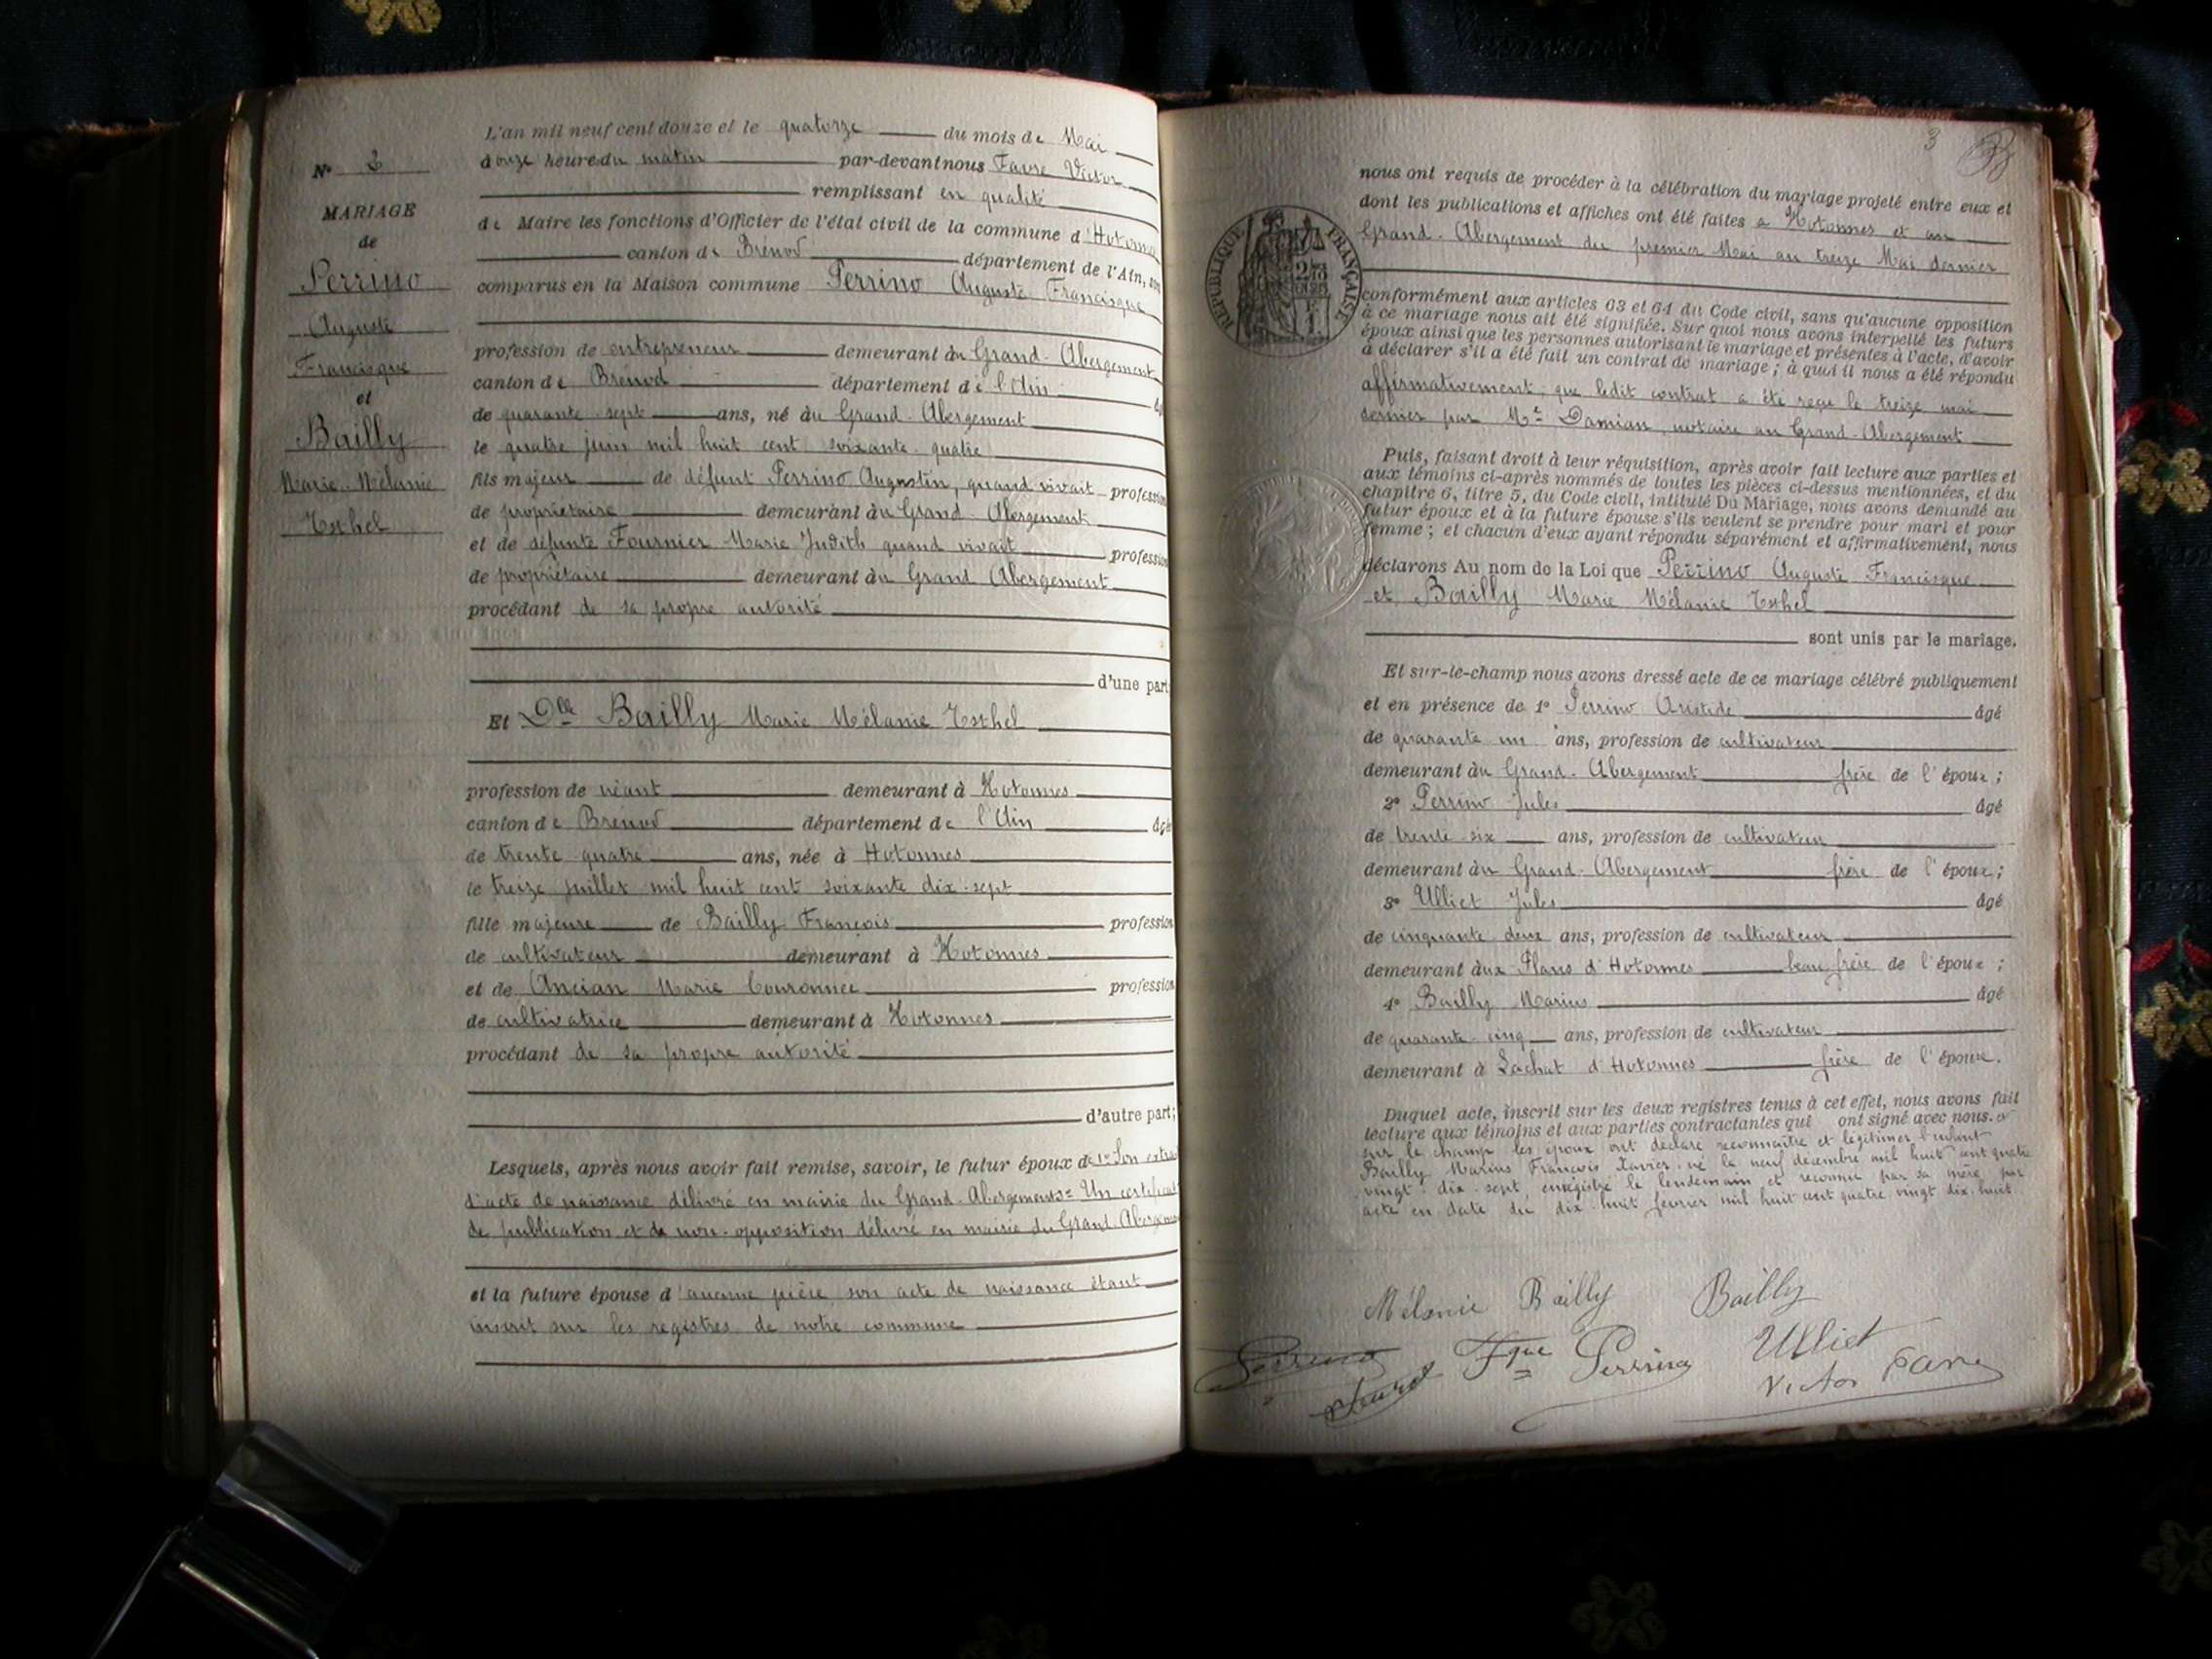 L'an mil neuf cent douze et le quatorze du mois de Mai
à onze heures du matin par-devant nous Favre Victor
remplissant en qualité
de Maire les fonctions d'Officier de l'état civil de la commune d'Hotonnes
canton de Brénod département de l'Ain, sont
comparus en la Maison commune Perrino Auguste Francisque
profession de entrepreneur demeurant au Grand-Abergement
canton de Brénod département de l'Ain
de quarante-sept ans, né au Grand-Abergement
le quatre juin mil huit cent soixante-quatre
fils majeur de défunt Perrino Augustin, quand vivait profession
de propriétaire demeurant au Grand-Abergement
et de défunte Fournier Marie Judith quand vivait profession
de propriétaire demeurant au Grand Abergement
procédant de sa propre autorité
d'une part
Et Dlle Bailly Marie Mélanie Esthel
profession de néant demeurant à Hotonnes
canton de Brénod département de l'Ain âgée
de trente-quatre ans, née à Hotonnes
le treize juillet mil huit cent soixante dix-sept
fille majeure de Bailly François profession
de cultivateur demeurant à Hotonnes
et de Ancian Marie Couronnée profession
de cultivatrice demeurant à Hotonnes
procédant de sa propre autorité
d'autre part;
Lesquels, après nous avoir fait remise, savoir, le futur époux de 1° Son extrait
d'acte de naissance délivré en mairie du Grand-Abergement 2° Un certificat
de publication et de non-opposition délivré en mairie du Grand-Abergement
et la future épouse d'aucune pièce son acte de naissance étant
inscrit sur les registres de notre commune
N°
MARIAGE
de
Perrino
Auguste
Francisque
et
Bailly
Marie-Mélanie
Esthel
3
nous ont requis de procéder à la célébration du mariage projeté entre eux et
dont les publications et affiches ont été faites à Hotonnes et au
Grand-Abergement du premier Mai au treize Mai dernier
RÉPUBLIQUE FRANÇAISE
conformément aux articles 63 et 64 du Code civil, sans qu'aucune opposition
à ce mariage nous ait été signifiée. Sur quoi nous avons interpellé les futurs
époux ainsi que les personnes autorisant le mariage et présentes à l'acte, d'avoir
à déclarer s'il a été fait un contrat de mariage; à quoi il nous a été répondu
affirmativement, que ledit contrat a été reçu le treize mai
dernier par Me Damian, notaire au Grand-Abergement
Puis, faisant droit à leur réquisition, après avoir fait lecture aux parties et
aux témoins ci-après nommés de toutes les pièces ci-dessus mentionnées, et du
chapitre 6, titre 5, du Code civil, intitulé Du Mariage, nous avons demandé au
futur époux et à la future épouse s'ils veulent se prendre pour mari et pour
femme; et chacun d'eux ayant répondu séparément et affirmativement, nous
déclarons Au nom de la Loi que Perrino Auguste Francisque
et Bailly Marie Mélanie Esthel
sont unis par le mariage.
Et sur-le-champ nous avons dressé acte de ce mariage célébré publiquement
et en présence de 1° Perrino Aristide âgé
de quarante un ans, profession de cultivateur
demeurant au Grand-Abergement frère de l'époux;
2° Perrino Jules âgé
de trente-six ans, profession de cultivateur
demeurant au Grand-Abergement frère de l'époux;
3° Ulliet Jules âgé
de cinquante-deux ans, profession de cultivateur
demeurant aux Plans d'Hotonnes beau-frère de l'époux;
4° Bailly Marius âgé
de quarante-cinq ans, profession de cultivateur
demeurant à Lachat d'Hotonnes frère de l'épouse.
Duquel acte, inscrit sur les deux registres tenus à cet effet, nous avons fait
lecture aux témoins et aux parties contractantes qui ont signé avec nous. et
sur le champ les époux ont déclaré reconnaître et légitimer l'enfant
Bailly Marius François Xavier né le neuf décembre mil huit cent quatre
vingt-dix-sept, enregistré le lendemain et reconnu par sa mère par
acte en date du dix-huit février mil huit cent quatre vingt dix-huit.
Mélanie Bailly Bailly
Perrino Fque Perrino Ulliet
Victor Favre